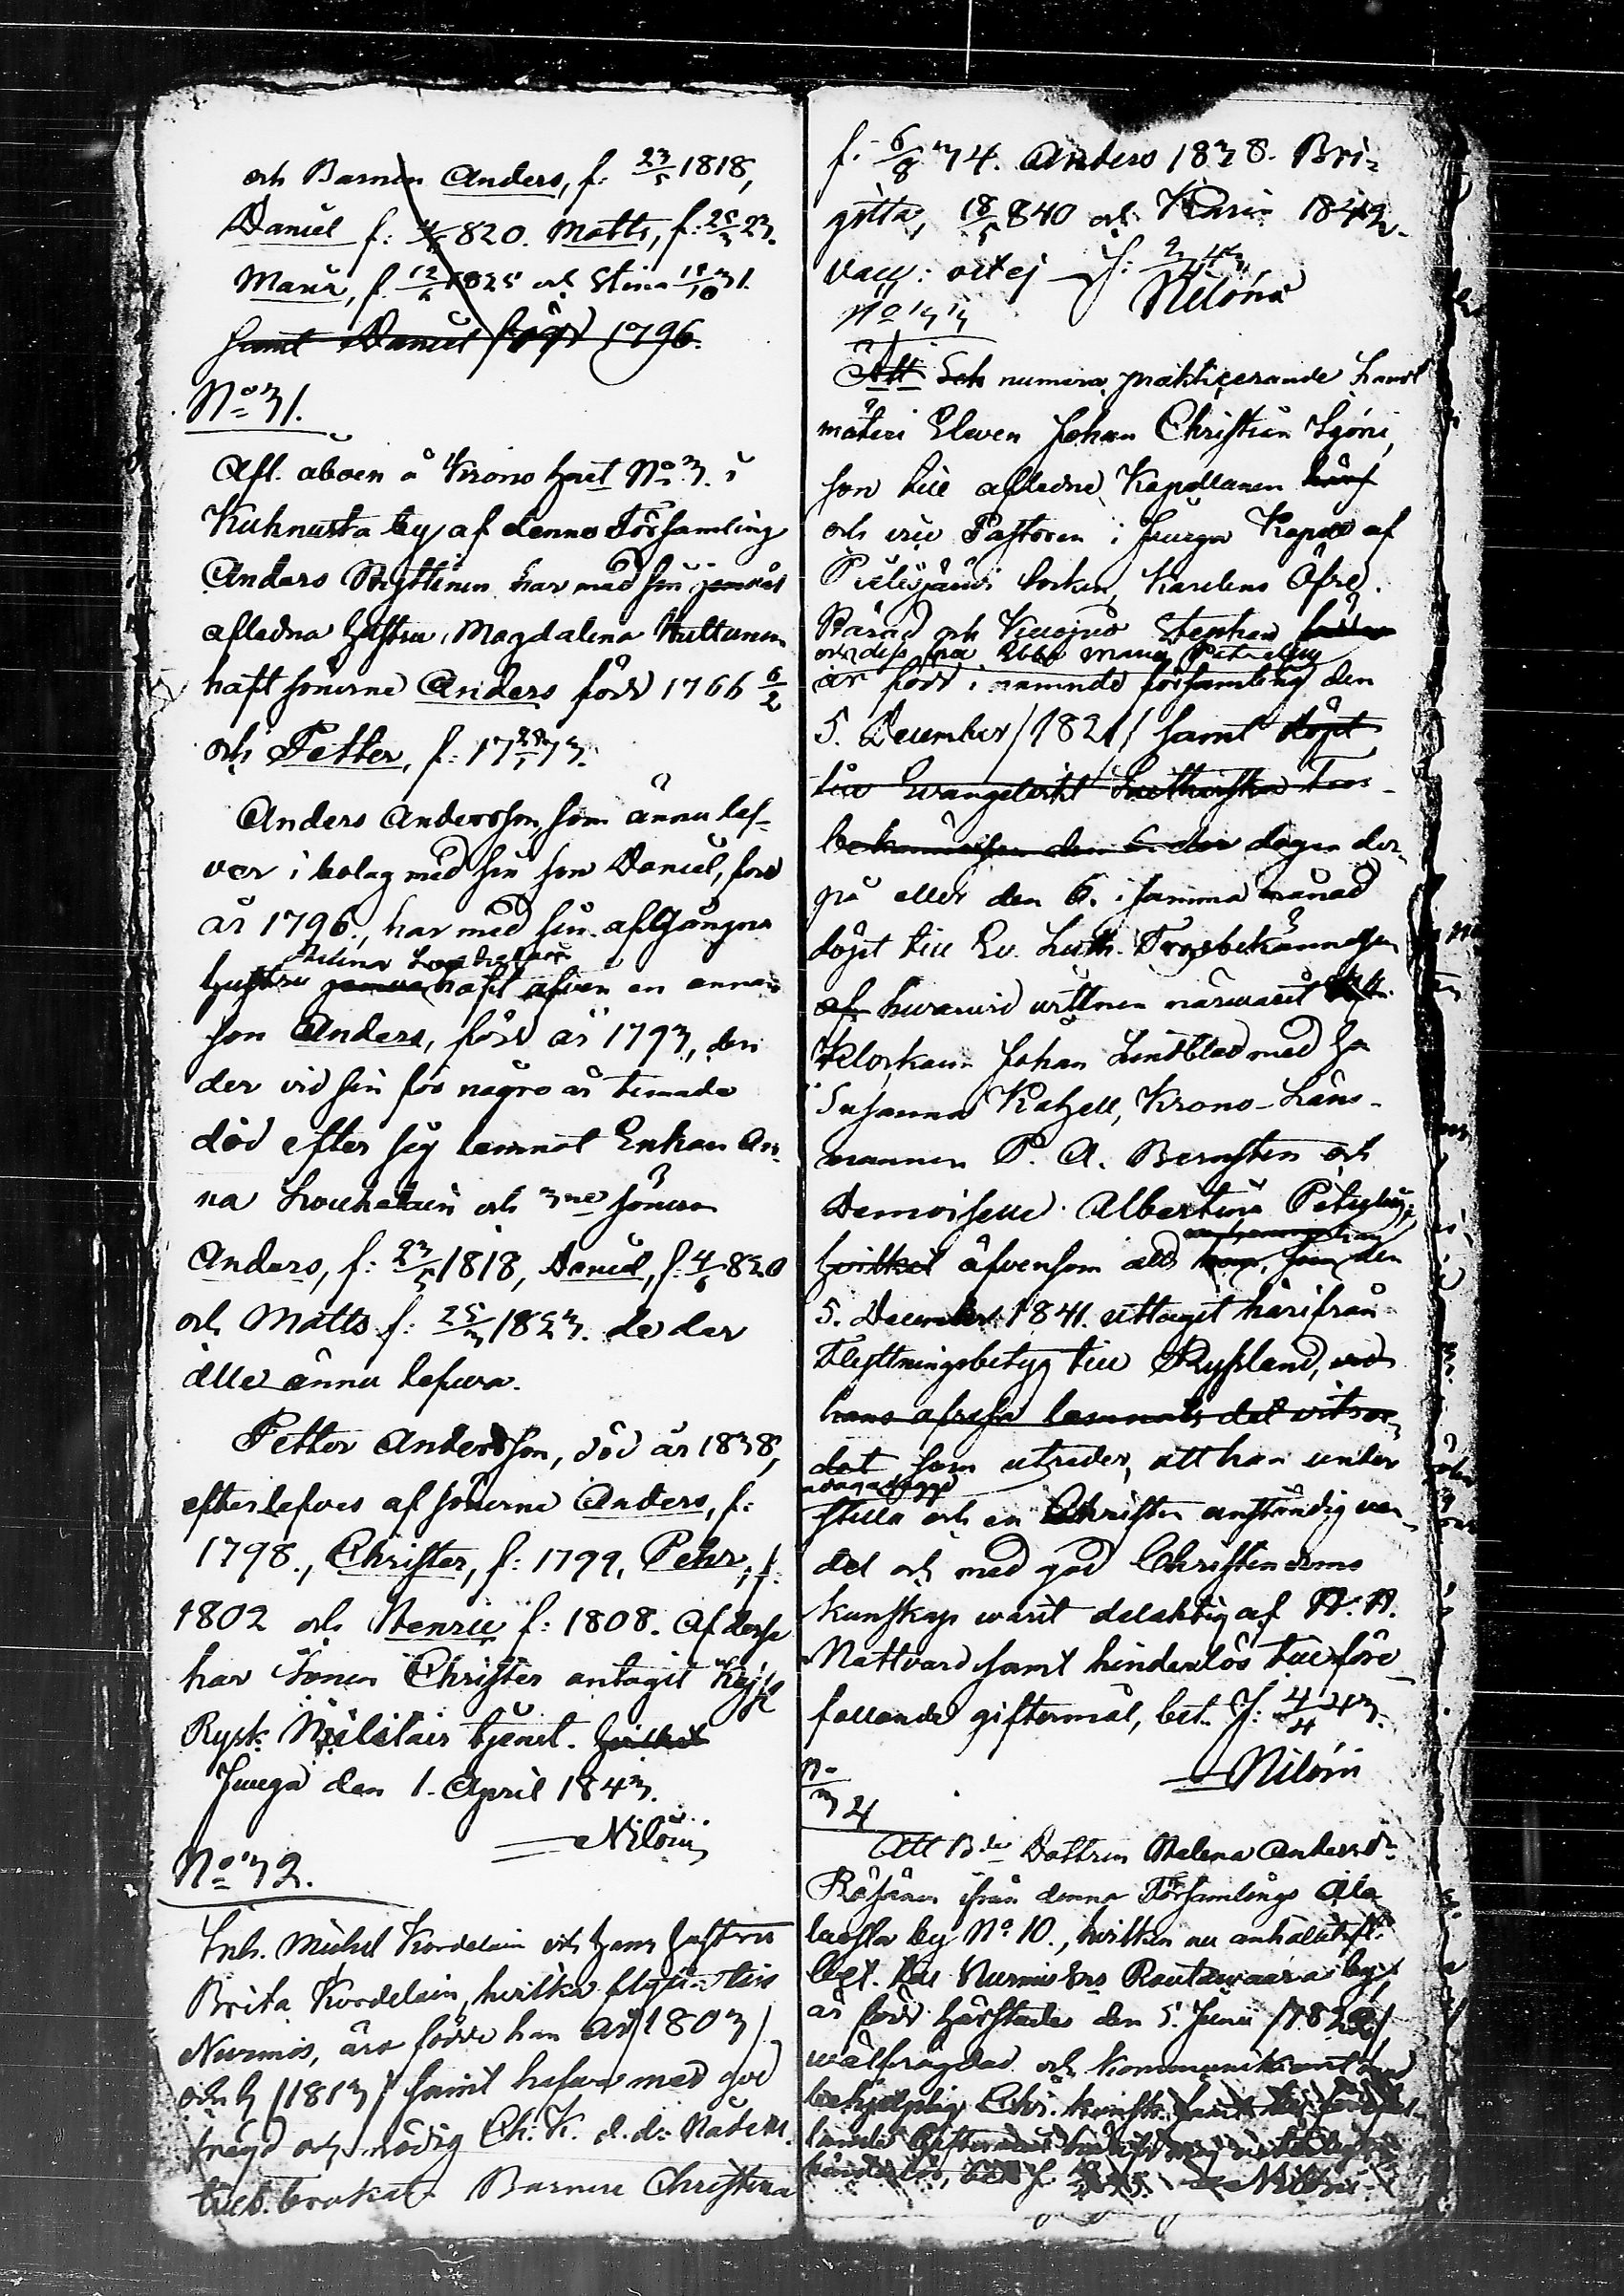 och Barnen Anders, f: 23/5 1818,
Daniel f: 4/6 820. Matts, f: 25/3 23.
Maria, f. 12/6 1825 och Stina 18/10 31.
samt Daniel född 1796.
No 31.
Afl. åboen å Krono Hmt No 3. i
Kuhnusta by af denna Församling
Anders Ryttinen har med sin
afledna Hustru, Magdalena Hultunen
haft sönerne Anders född 1766 6/2
och Petter, f: 17 73.
Anders Andersson, som ännu lef-
ver i bolag med sin son Daniel, född
år 1796, har med sin afgångna
Helena Louhelain
hustru haft äfven en annan
son Anders, född år 1793, den
der vid sin för några år timade
död efter sig lemnat Enkan An-
na Louhelain och 3ne söner
Anders, f: 23/5 1818, Daniel, f: 4/6 820
och Matts f: 25/3 1823. de der
alle ännu lefva.
Petter Andersson, död år 1838,
efterlefves af sönerne Anders, f:
1798., Christer, f: 1799, Pehr, f:
1802 och Henric f: 1808. Af desse
har Sonen Christer antagit Kejs
Rysk Militair tjenst. hvilket
Juuga den 1. April 1843.
Nilóni
No 32.
Inh. Michel Kordelain och hans hustru
Brita Kordelain, hvilka flytta till
Nurmis, äro födde han år /1803/
och h /1813/ samt hafva med god
frägd och nödig Ch. K. d. d: Nådens
bruka Barnen Christina
f: 6/8 34. Anders 1838. Bri-
gitta, 18/5 840 och Karin 1842.
vacc: att ej J: 2/4 43
Nilóni
No 33
Att numera practicerande Landt
mäteri Eleven Johan Christian
son till afledne Kapellanen
och vice Pastoren i Juuga Kapell af
Pielisjärvi Socken, Karelens Öfre
Härad och Kuopio Stephan
och dess fru Ebba Maria
är född i nämnde församling den
5. December /1821/ samt döpt
till Evangeliskt Lutherska Tros-
bekännelsen den 6. dagen der-
på eller den 6. i samma månad
döpt till Ev. Luth. Trosbekännelsen
af hvarvid vittnen närvarit
Klockaren Johan Lindblad med h
Susanna Katzell, Krono-Läns-
mannen P. A. Bernsten och
Demoiselle Albertina
hvilket äfvensom att den
5. December 1841. uttagit härifrån
Flyttningsbetyg till Ryssland, vid
hans afresa lemnats det vitsor-
det som utreder, att han under
ådagalaggd
stilla och en Christen anständig van-
del och med god Christendoms
kunskap warit delaktig af H. H.
Nattvard samt hinderlös till före-
fallande giftermål, bet. J: 4/4 43.
Nilóni
No 34
Att Bde Dottren Helena Andersdr
från denna Församlings Ala
by No 10., hvilken nu anhållit
till Nurmis Rautavaara by,
är född härstädes den 5. Junii /182
välfrägdad och kommunikant med
behjelplig Chr. kunsk. samt till förefal-
lande Giftermål
hinderlös, bet J. Nilóni